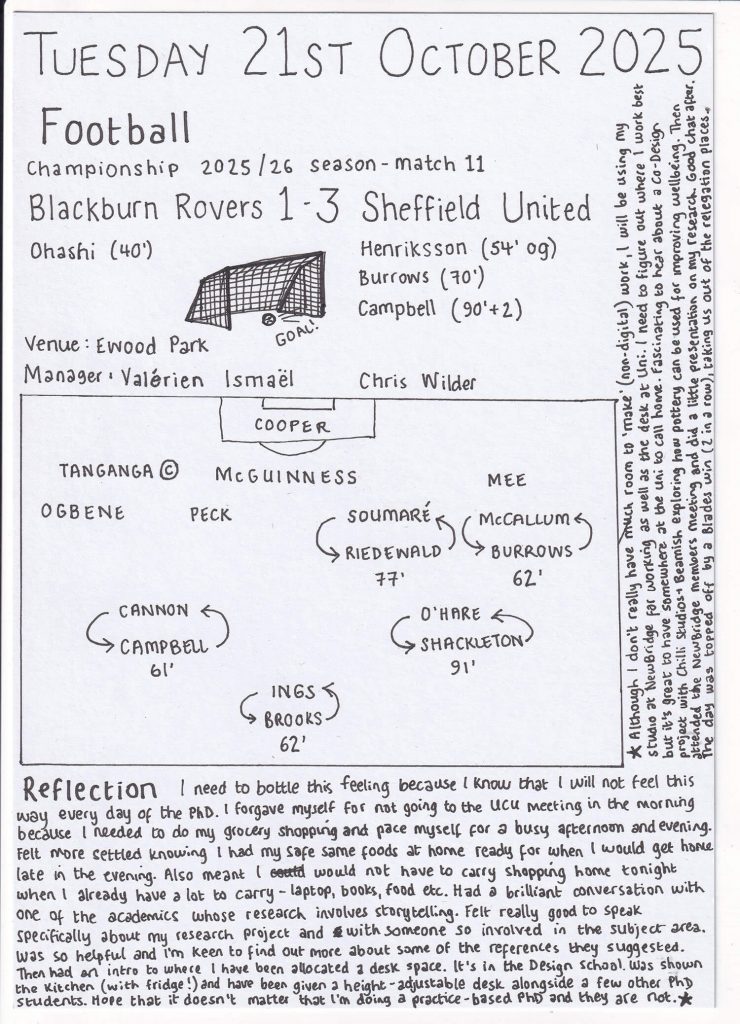 TUESDAY 21ST OCTOBER 2025
Football
Championship 2025/26 season - match 11
Blackburn Rovers 1-3 Sheffield United
Ohashi (40')
Henriksson (54' og)
Burrows (70')
Campbell (90'+2)
GOAL!
Venue: Ewood Park
Manager: Valérien Ismaël Chris Wilder
COOPER
TANGANGA © MCGUINNESS MEE
OGBENE PECK SOUMARÉ MCCALLUM
RIEDEWALD BURROWS
77' 62'
CANNON O'HARE
CAMPBELL SHACKLETON
61' 91'
INGS
BROOKS
62'
Reflection I need to bottle this feeling because I know that I will not feel this
way every day of the PhD. I forgave myself for not going to the UCU meeting in the morning
because I needed to do my grocery shopping and pace myself for a busy afternoon and evening.
Felt more settled knowing I had my safe same foods at home ready for when I would get home
late in the evening. Also meant I could would not have to carry shopping home tonight
when I already have a lot to carry - laptop, books, food etc. Had a brilliant conversation with
one of the academics whose research involves storytelling. Felt really good to speak
specifically about my research project and with someone so involved in the subject area.
Was so helpful and I'm keen to find out more about some of the references they suggested.
Then had an intro to where I have been allocated a desk space. It's in the Design School. Was shown
the kitchen (with fridge!) and have been given a height-adjustable desk alongside a few other PhD
students. Hope that it doesn't matter that I'm doing a practice-based PhD and they are not. ★
★ Although I don't really have much room to 'make' (non-digital) work, I will be using my
studio at NewBridge for working as well as the desk at Uni. I need to figure out where I work best
but it's great to have somewhere at the Uni to call home. Fascinating to hear about a Co-Design
project with Chilli Studios + Beamish exploring how pottery can be used for improving wellbeing. Then
attended the NewBridge members meeting and did a little presentation on my research. Good chat after.
The day was topped off by a Blades win (2 in a row), taking us out of the relegation places.